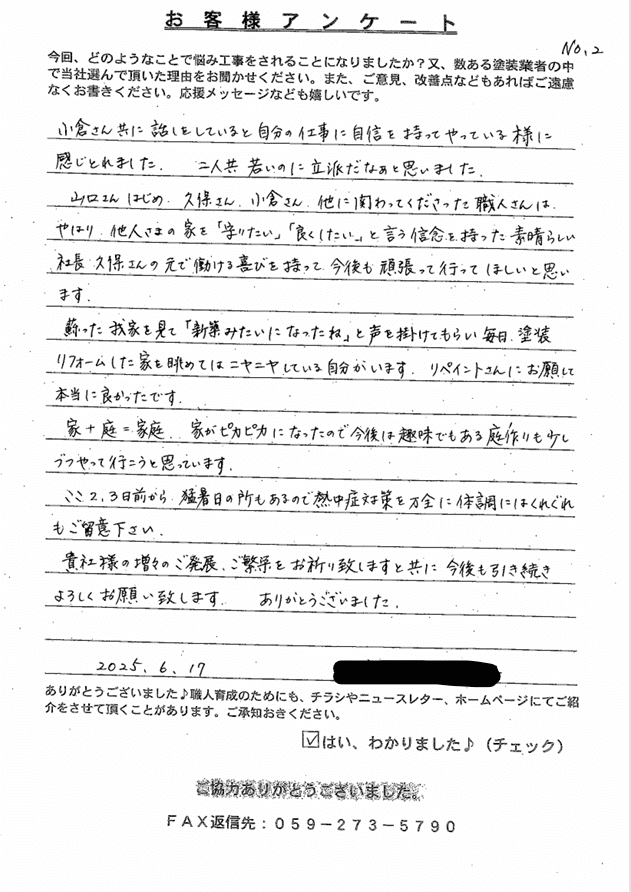 お客様アンケート
No,2
今回、どのようなことで悩み工事をされることになりましたか?又、数ある塗装業者の中
で当社選んで頂いた理由をお聞かせください。また、ご意見、改善点などもあればご遠慮
なくお書きください。応援メッセージなども嬉しいです。
小倉さん共に話しをしていると自分の仕事に自信を持ってやっている様に
感じとれました. 二人共若いのに立派だなぁと思いました.
山口さんはじめ. 久保さん. 小倉さん. 他に関わってくださった職人さんは、
やはり. 他人さまの家を「守りたい」「良くしたい」と言う信念を持った素晴らしい
社長. 久保さんの元で働ける喜びを持って. 今後も頑張って行ってほしいと思い
ます.
蘇った我家を見て「新築みたいになったね」と声を掛けてもらい毎日.塗装
リフォームした家を眺めてはニヤニヤしている自分がいます. リペイントさんにお願して
本当に良かったです.
家+庭=家庭. 家がピカピカになったので今後は趣味でもある庭作りも少し
づつやって行こうと思っています.
ここ2.3日前から.猛暑日の所もあるので熱中症対策を万全に体調にはくれぐれ
もご留意下さい.
貴社様の増々のご発展、ご繁栄をお祈り致しますと共に今後も引き続き
よろしくお願い致します. ありがとうございました.
2025.6.17
ありがとうございました♪職人育成のためにも、チラシやニュースレター、ホームページにてご紹
介をさせて頂くことがあります。ご承知おきください。
☑はい、わかりました♪(チェック)
ご協力ありがとうございました。
FAX返信先:059-273-5790